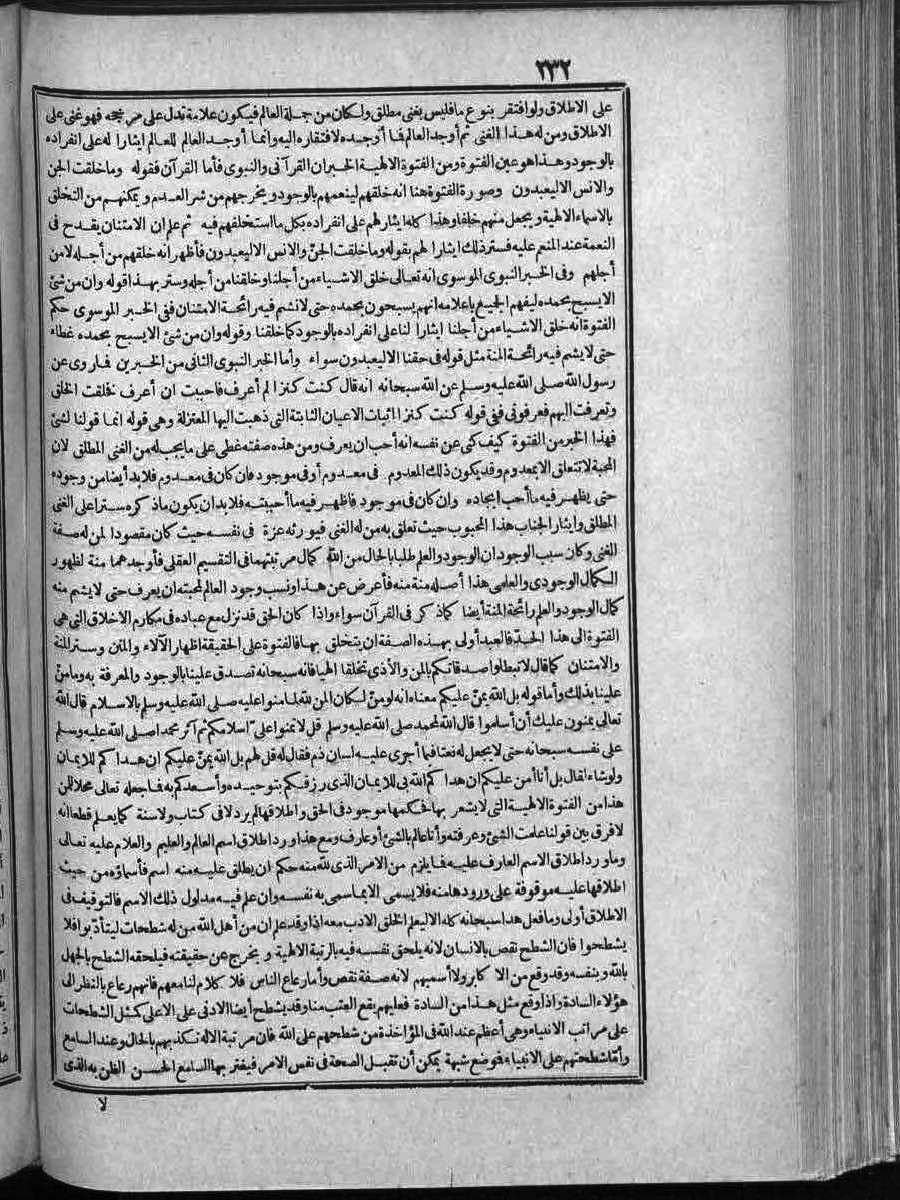 ٢٣٢
على الاطلاق ولو افتقر بنوع ما فليس بغنى مطلق ولكان من جملة العالم فيكون علامة تدل على مرجحه فهو غنى على
الاطلاق ومن له هذا الغنى ثم أوجد العالم فما أوجده لافتقاره اليه وانما أوجد العالم للعالم ايثارا له على انفراده
بالوجود وهذا هو عين الفتوة ومن الفتوة الالهية الخبران القرآنى والنبوى فأما القرآن فقوله وما خلقت الجن
والانس الا ليعبدون وصورة الفتوة هنا انه خلقهم لينعمهم بالوجود ويخرجهم من شر العدم ويمكنهم من التخلق
بالاسماء الالهية ويجعل منهم خلفا وهذا كله ايثار لهم على انفراده بكل ما استخلفهم فيه ثم علم ان الامتنان يقدح فى
النعمة عند المنعم عليه فستر ذلك ايثارا لهم بقوله وما خلقت الجن والانس الا ليعبدون فأظهر انه خلقهم من أجله لا من
أجلهم وفى الخبر النبوى الموسوى انه تعالى خلق الاشياء من أجلنا وخلقنا من أجله وستر بهذا قوله وان من شئ
الا يسبح بحمده ليفهم الجميع باعلامه انهم يسبحون بحمده حتى لا نشم فيه رائحة الامتنان ففى الخبر الموسوى حكم
الفتوة انه خلق الاشياء من أجلنا ايثارا لنا على انفراده بالوجود كما خلقنا وقوله وان من شئ الا يسبح بحمده غطاء
حتى لا يشم فيه رائحة المنة مثل قوله فى حقنا الا ليعبدون سواء وأما الخبر النبوى الثانى من الخبرين فما روى عن
رسول الله صلى الله عليه وسلم عن الله سبحانه انه قال كنت كنزا لم أعرف فاحببت ان أعرف فخلقت الخلق
وتعرفت اليهم فعرفونى ففى قوله كنت كنزا اثبات الاعيان الثابتة التى ذهبت اليها المعتزلة وهى قوله انما قولنا لشئ
فهذا الخبر من الفتوة كيف كنى عن نفسه انه أحب ان يعرف ومن هذه صفته غطى على ما يجب له من الغنى المطلق لان
المحبة لا تتعلق الا بمعدوم وقد يكون ذلك المعدوم فى معدوم أو فى موجود فان كان فى معدوم فلا بد أيضا من وجوده
حتى يظهر فيه ما أحب ايجاده وان كان فى موجود فاظهر فيه ما أحببته فلا بد ان يكون ماذكره سترا على الغنى
المطلق وايثار الجناب هذا المحبوب حيث تعلق به من له الغنى فيورثه عزة فى نفسه حيث كان مقصودا لمن له صفة
الغنى وكان سبب الوجود ان الوجود والعلم طلبا بالحال من الله كمال مرتبتهما فى التقسيم العقلى فأوجدهما منة لظهور
الكمال الوجودى والعلمى هذا أصله منة منه فأعرض عن هذا ونسب وجود العالم لمحبته ان يعرف حتى لا يشم منه
كمال الوجود والعلم رائحة المنة أيضا كما ذكر فى القرآن سواء واذا كان الحق قد نزل مع عباده فى مكارم الاخلاق التى هى
الفتوة الى هذا الحد فالعبد أولى بهذه الصفة ان يتخلق بها فالفتوة على الحقيقة اظهار الآلاء والمنن وستر المنة
والامتنان كما قال لا تبطلوا صدقاتكم بالمن والأذى تخلقا الهيا فانه سبحانه تصدق علينا بالوجود والمعرفة به وما منّ
علينا بذلك وأما قوله بل الله يمنّ عليكم معناه انه لو منّ لكان المن لله لما منوا عليه صلى الله عليه وسلم بالاسلام قال الله
تعالى يمنون عليك أن أسلموا قال الله لمحمد صلى الله عليه وسلم قل لا تمنوا علىّ اسلامكم ثم آثر محمدا صلى الله عليه وسلم
على نفسه سبحانه حتى لا يجعل له نعتا فيما أجرى عليه لسان ذم فقال له قل لهم بل الله يمنّ عليكم ان هداكم للايمان
ولو شاء لقال بل أنا أمن عليكم ان هداكم الله بى للايمان الذى رزقكم بتوحيده وأسعدكم به فما جعله تعالى محلا للمن
هذا من الفتوة الالهية التى لا يشعر بها فحكمها موجود فى الحق واطلاقها لم يرد لا فى كتاب ولا سنة كما يعلم قطعا انه
لا فرق بين قولنا علمت الشئ وعرفته وأنا عالم بالشئ أو عارف ومع هذا ورد اطلاق اسم العالم والعليم والعلام عليه تعالى
وما ورد اطلاق الاسم العارف عليه فما يلزم من الامر الذى لله منه حكم ان يطلق عليه منه اسم فأسماؤه من حيث
اطلاقها عليه موقوفة على ورودها منه فلا يسمى الا بما سمى به نفسه وان علم فيه مدلول ذلك الاسم فالتوقيف فى
الاطلاق أولى وما فعل هذا سبحانه كله الا ليعلم الخلق الادب معه اذ وقد علم ان من أهل الله من له شطحات ليتأدبوا فلا
يشطحوا فان الشطح نقص بالانسان لانه يلحق نفسه فيه بالرتبة الالهية ويخرج عن حقيقته فيلحقه الشطح بالجهل
بالله وبنفسه وقد وقع من الا كابر ولا أسميهم لانه صفة نقص وأما رعاع الناس فلا كلام لنا معهم فانهم رعاع بالنظر الى
هؤلاء السادة واذا وقع مثل هذا من السادة فعليهم يقع العتب منا وقد يشطح أيضا الادنى على الاعلى كمثل الشطحات
على مراتب الانبياء وهى أعظم عند الله فى المؤاخذة من شطحهم على الله فان مرتبة الاله تكذبهم بالحال وعند السامع
وأما شطحتهم على الانبياء فموضع شبهة يمكن أن تقبل الصحة فى نفس الامر فيفتر بها السامع الحسن الظن به الذى
لا